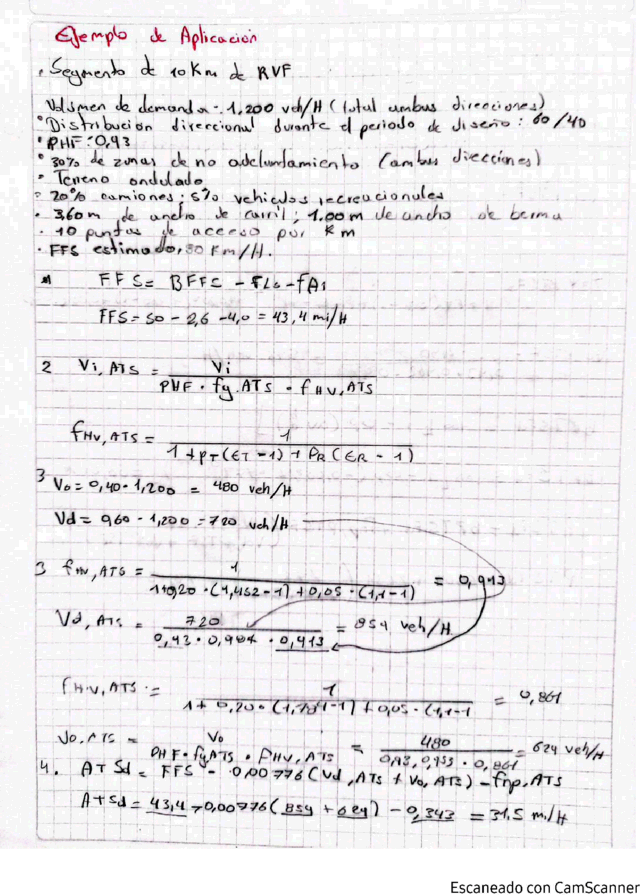 Ejemplo de Aplicación
. Segmento de 10 Km de RVF
Volumen de demanda = 1,200 veh/H (total ambas direcciones)
° Distribución direccional durante el periodo de diseño: 60/40
° PHF = 0,93
° 30% de zonas de no adelantamiento (ambas direcciones)
- Terreno ondulado
- 20% camiones; 5% vehiculos recreacionales
- 3,60 m de ancho de carril; 1.00m de ancho de berma
. 10 puntos de acceso por Km
. FFS estimado, 80 Km/H.
FFS = BFFS - FLs - fAs
FFS = 50 - 2,6 - 4,0 = 43,4 mi/H
2 Vi, ATS = Vi / PHF · fg.ATS · fHV, ATS
fHV, ATS = 1 / 1 + PT (ET - 1) + PR (ER - 1)
3 Vo = 0,40 · 1,200 = 480 veh/H
Vd = 0,60 · 1,200 = 720 veh/H
3 fHV, ATS = 1 / 1+0,20 · (1,452 - 1) + 0,05 · (1,1 - 1) = 0,913
Vd, ATS = 720 / 0,93 · 0,984 · 0,913 = 854 veh/H
fHV, ATS = 1 / 1 + 0,20 · (1,784 - 1) + 0,05 · (1,1 - 1 = 0,861
Vo. ATS = Vo / PHF · fg ATS · fHV, ATS = 480 / 0,93, 0,953 · 0,861 = 624 veh/H
4. ATSd = FFS - 0,00776 (Vd, ATS + Vo, ATS) - fnp, ATS
ATSd = 43,4 - 0,00776 (854 + 624) - 0,343 = 31.5 mi/H
Escaneado con CamScanner